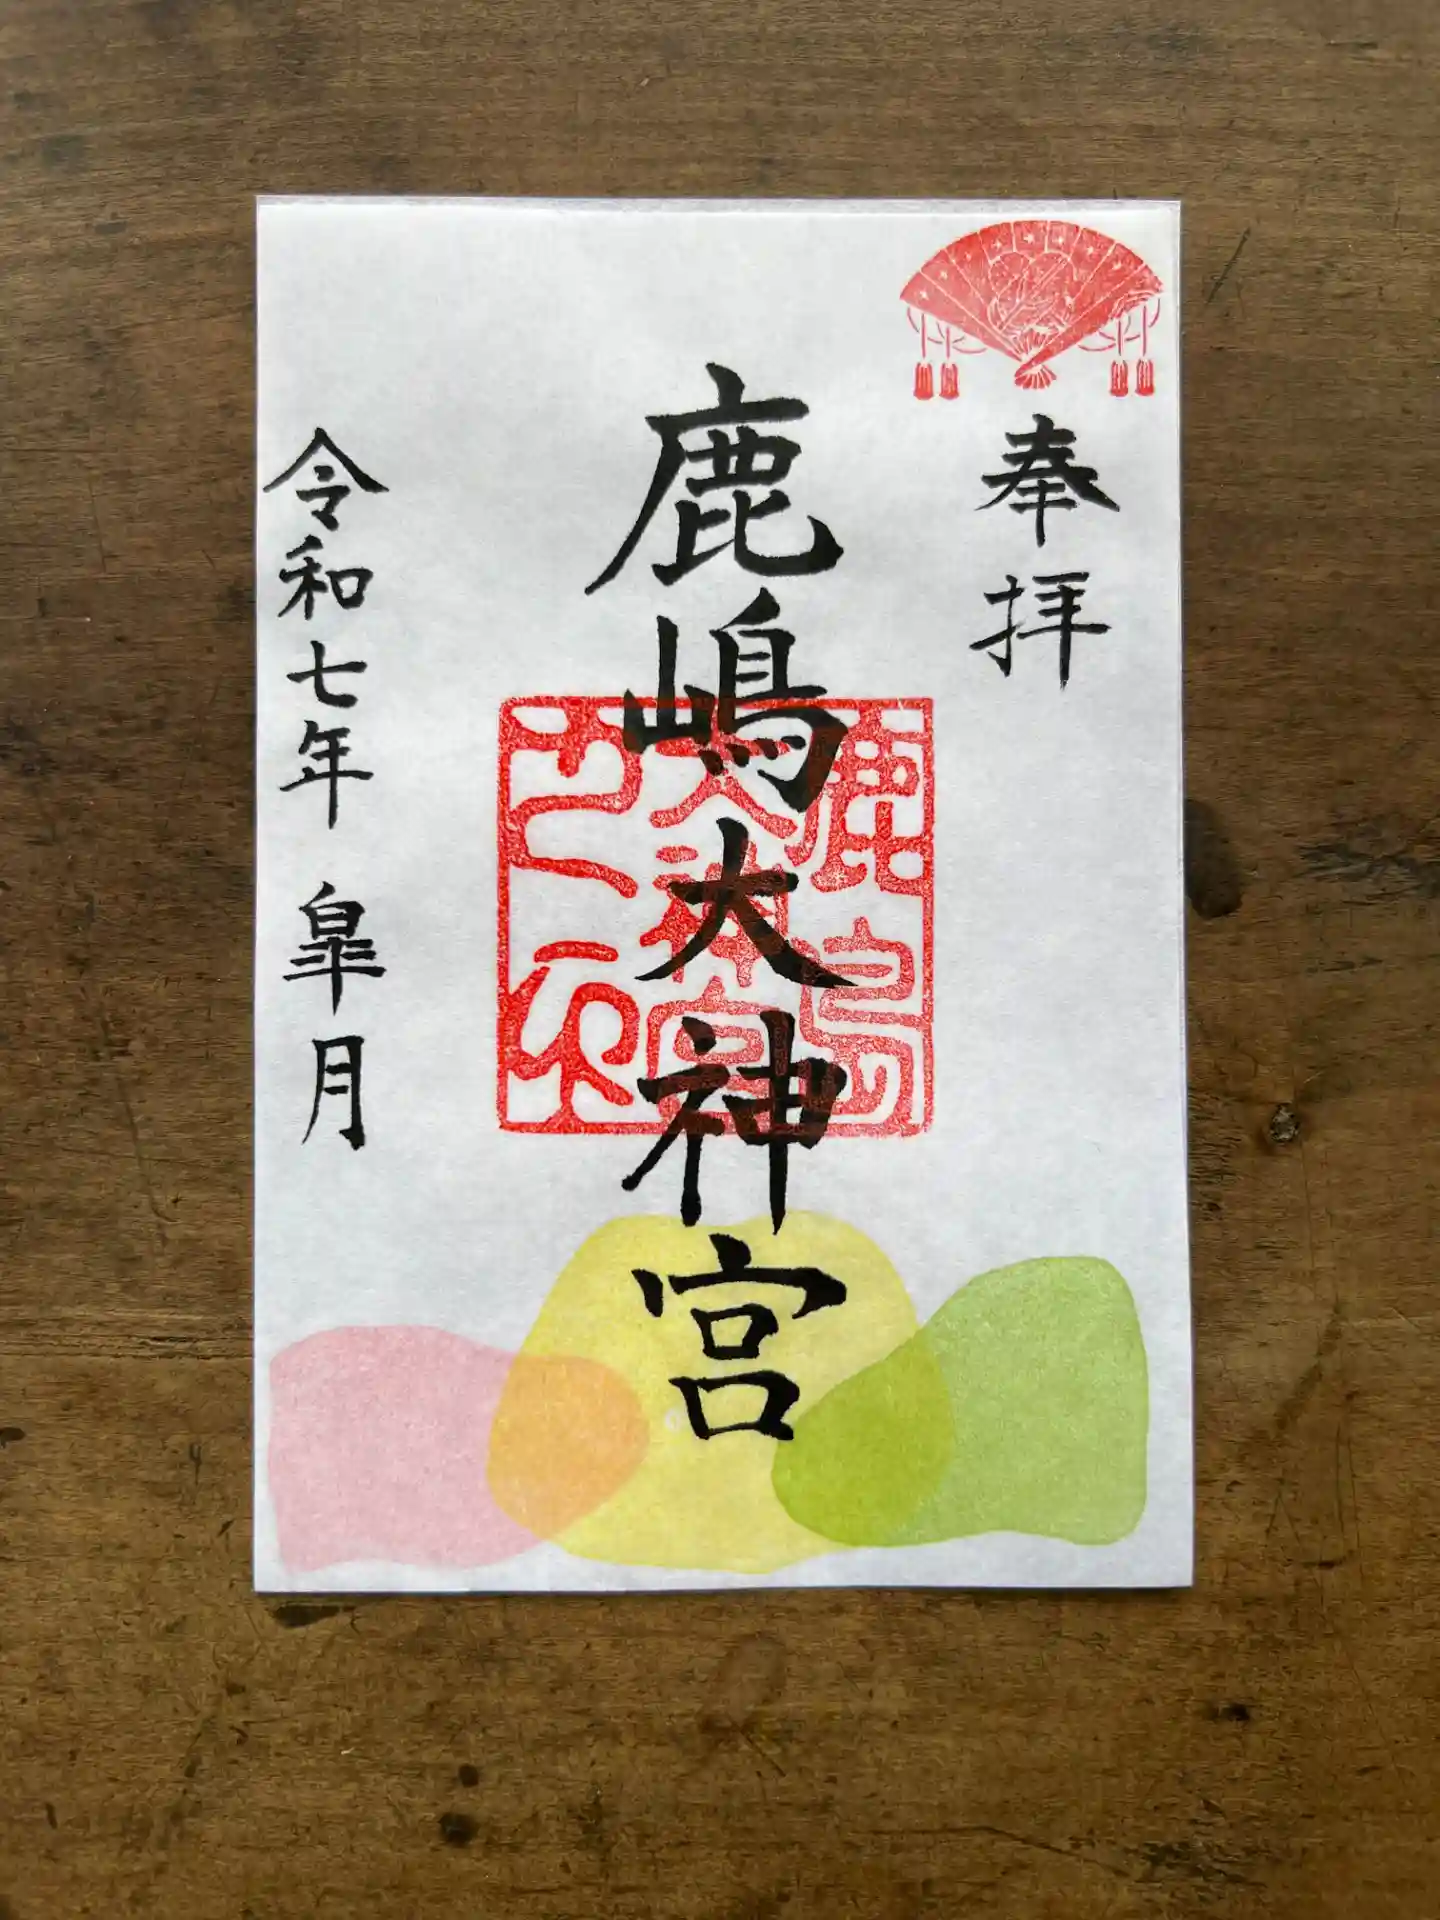 奉拝
鹿嶋大神宮
鹿島
大神宮
之印
令和七年 皐月